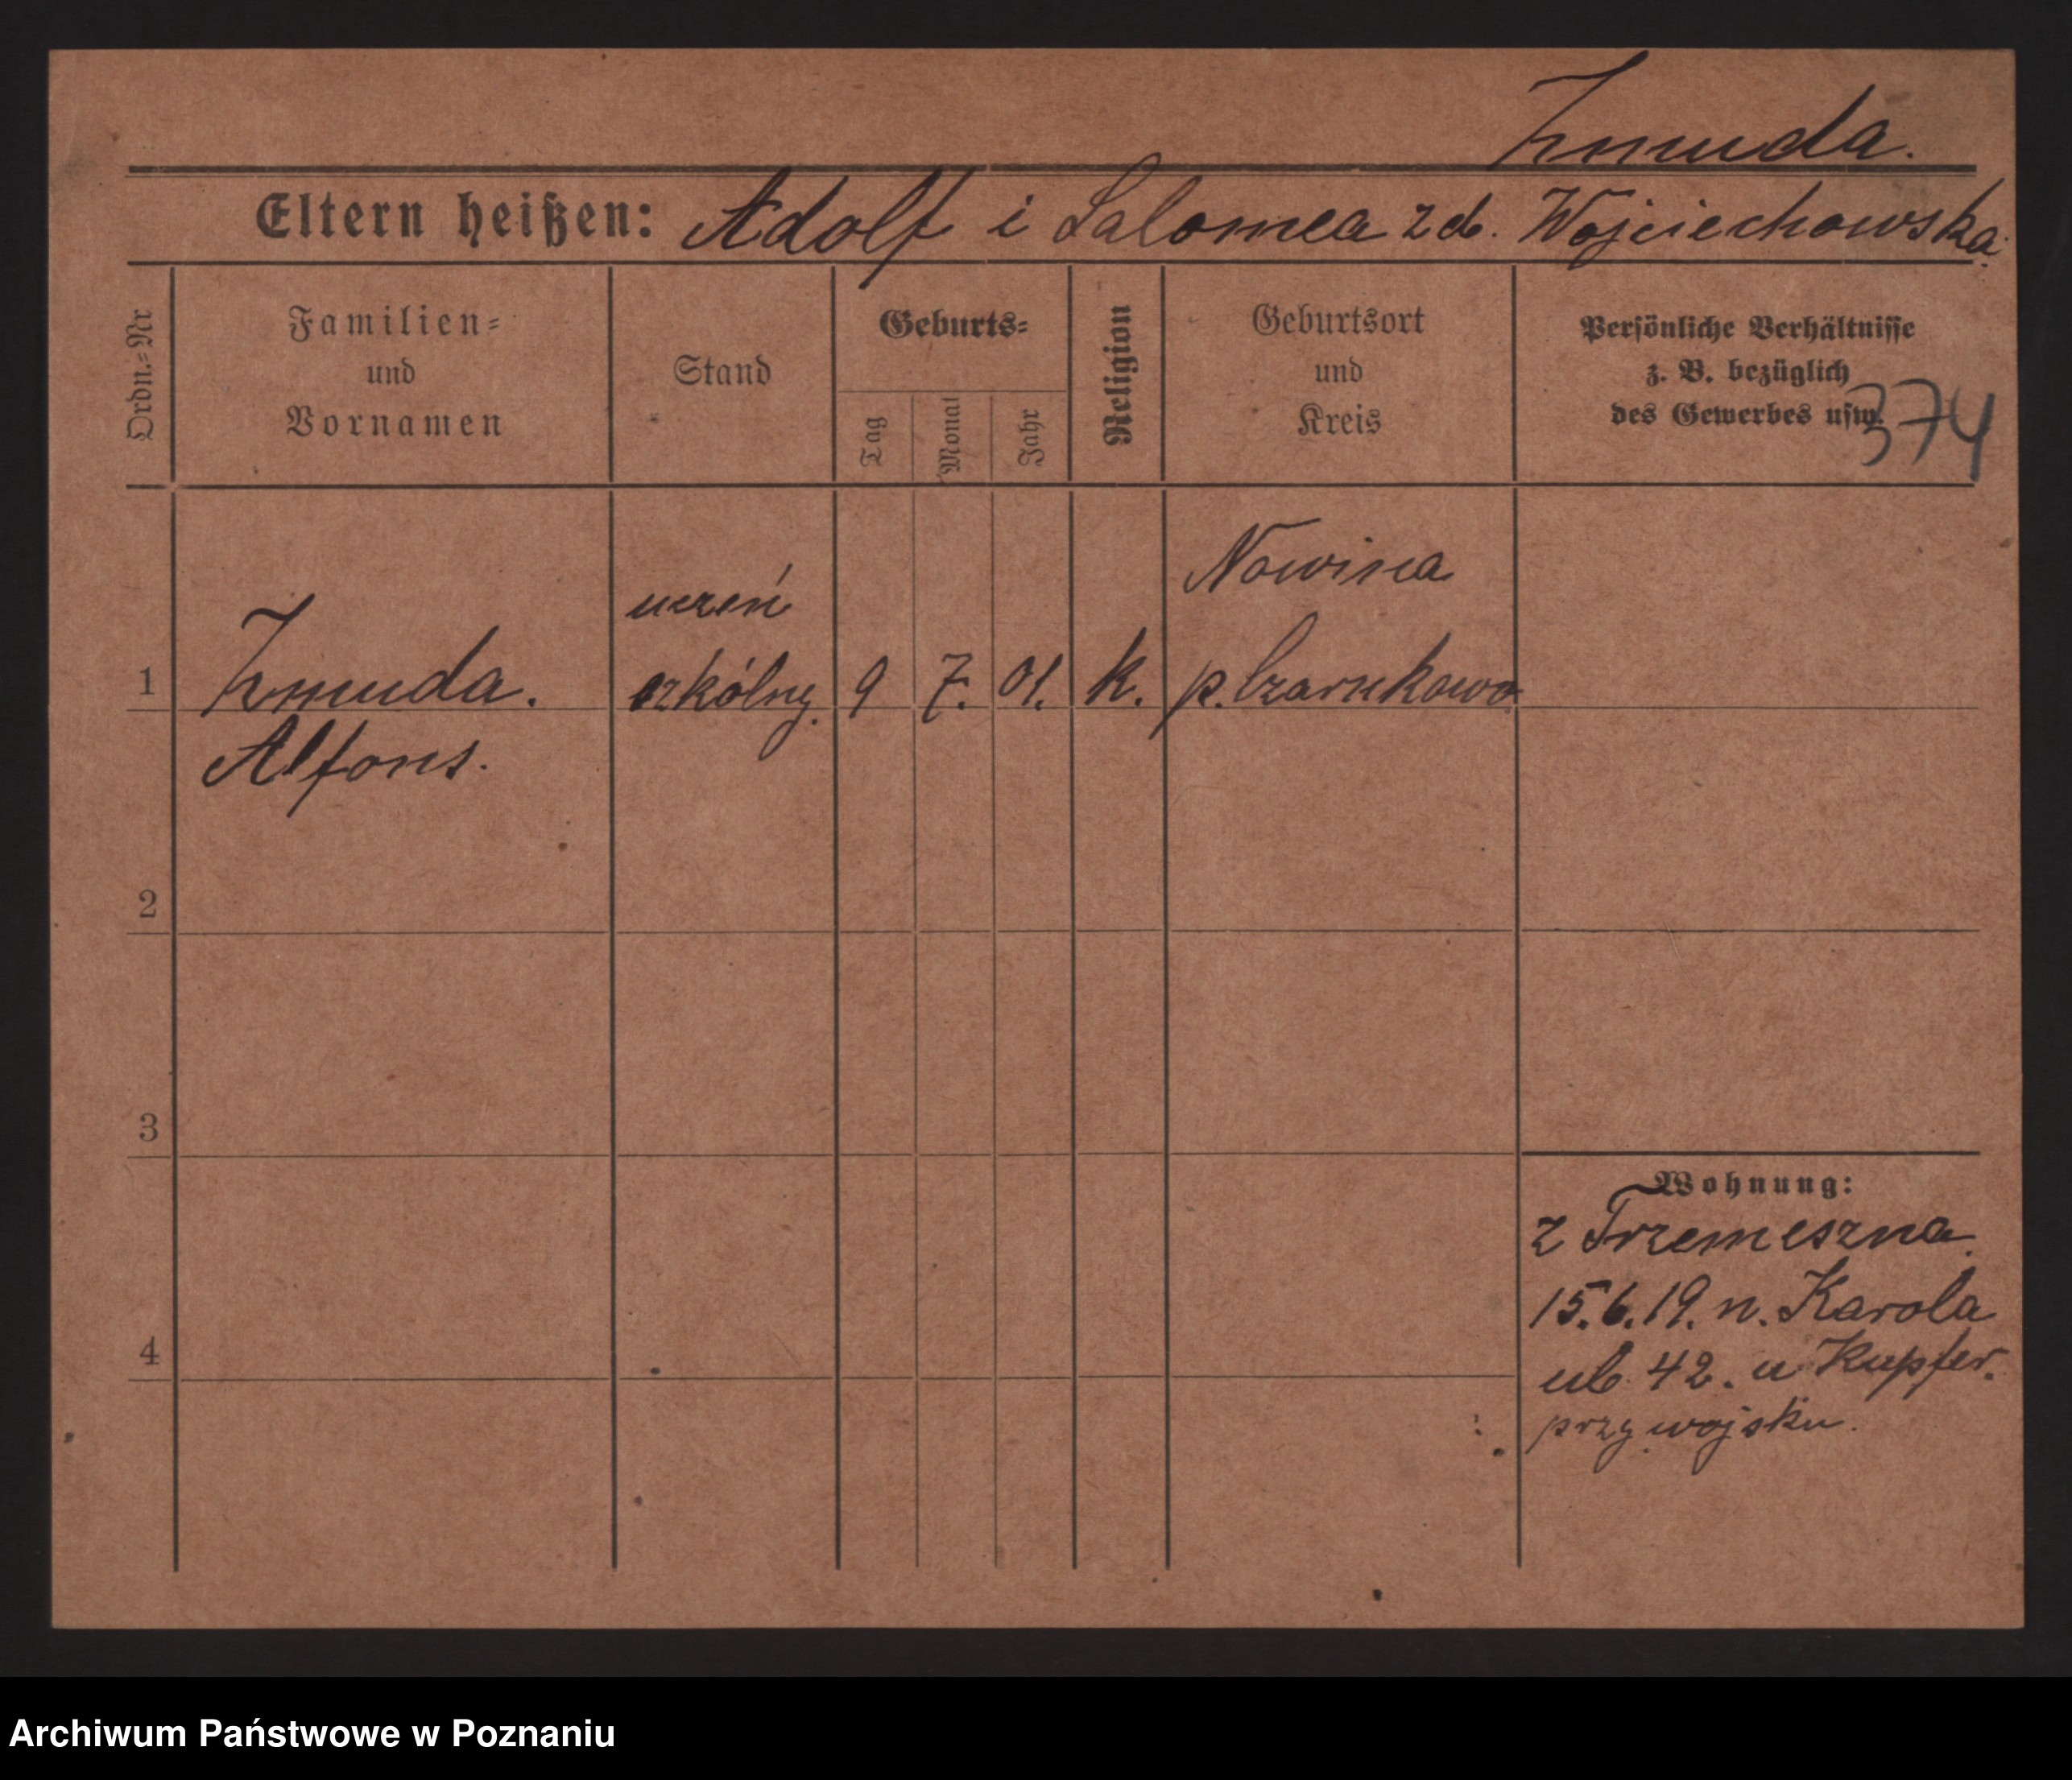 Zmuda.
Eltern heißen: Adolf i Salomea zd. Wojciechowska.
Ordn.=Nr
Familien=
und
Vornamen
Stand
Geburts=
Tag
Monat
Jahr
Religion
Geburtsort
und
Kreis
Persönliche Verhältnisse
z. B. bezüglich
des Gewerbes usw.
374
1
Zmuda.
Alfons.
uczeń
szkólny.
9
7.
01.
k.
Nowina
p. Czarnkowo.
2
3
4
Wohnung:
z Trzemeszna.
15.6.19. n. Karola
ul. 42. u Kupfer.
przy wojsku.
Archiwum Państwowe w Poznaniu